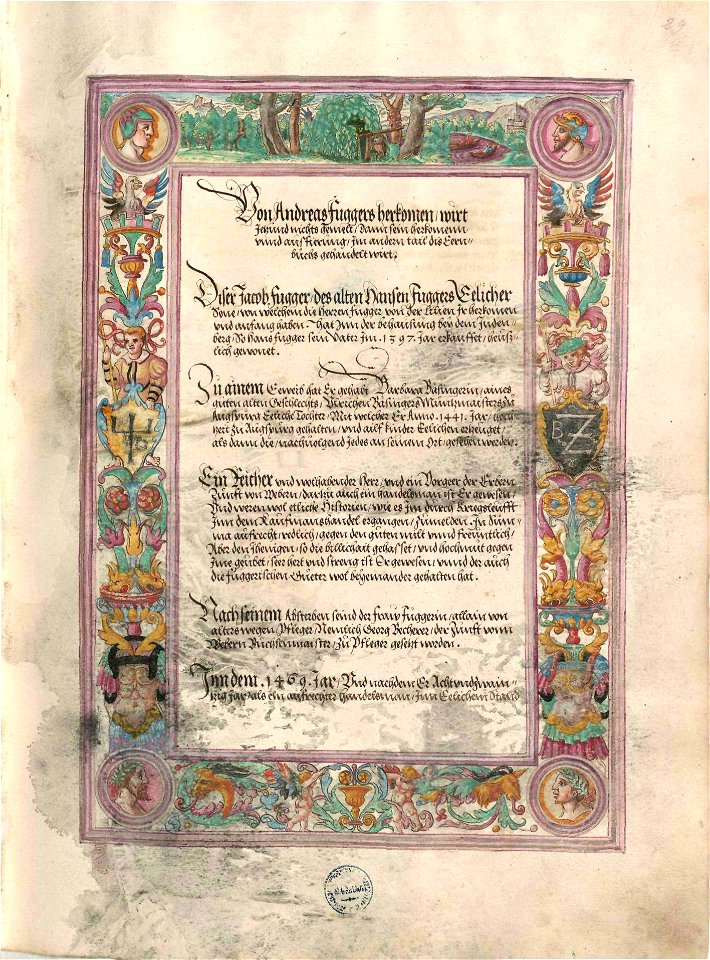 29
Von Andreas Fuggers herkomen / wirt
Jetzund nichts gemelt / Dann sein herkomenn
vnnd
Im andern tail dis Eern
buchs gehandelt wirt.
Diser Jacob Fugger / des alten Hansen Fuggers Eelicher
Sone / von welchem die Herren Fugger von der Lilien Jr herkomen
vnd anfang haben / hat Inn der behausung bey dem Juden
berg / so Hans Fugger sein Vater Im . 1397. Jar erkaufft / heüs
lich gewonet.
Zu ainem Eeweib hat Er gehabt Barbara Bäsingerin / aines
guten alten Geschlechts / Vlrichen Bäsingers Müntzmaisters zu
Augspurg Eeliche Tochter / Mit welcher Er Anno .1441. Jar / hoch
zeit zu Augspurg gehalten / vnd ailf kinder Eelichen erzeuget /
als dann die / nachuolgend jedes an seinem Ort / gesehen werden.
Ein Reicher vnd wolhabender Herr / vnd ein Vorgeer der Erbern
Zunfft von Webern / darzu auch ein handelsman ist Er gewesen /
Vnd weren wol etliche Historien / wie es Im durch Kriegsleüfft
Inn dem Kaufmanshandel ergangen / zumelden. In Sum
ma aufrecht / redlich / gegen den guten milt vnnd freüntlich /
Aber den Jhenigen / so die billichait gehasset / vnd hochmut gegen
Jme geübet / seer hert vnd streng ist Er gewesen / vnnd Er auch
die Fuggerischen Güeter wol beyeinander gehalten hat.
Nach seinem Absterben seind der Fraw Fuggerin / allain von
alters wegen / Pfleger / Nemlich Georg Becherer / der Zunfft vonn
Webern Büchsenmaister / zu Pfleger gesetzt worden.
Inn dem . 1469. Jar / Vnd nachdem Er Achtvndzwain
tzig Jar / als ein aufrechter Handelsman / Inn Eelichem Stand
B Z